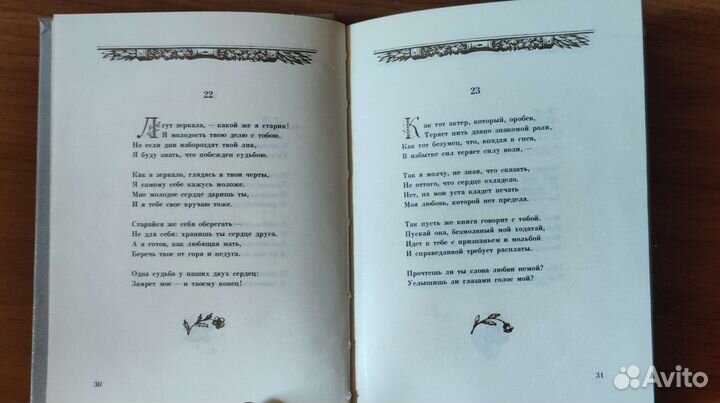 22
Лгут зеркала, — какой же я старик!
Я молодость твою делю с тобою.
Но если дни избороздят твой лик,
Я буду знать, что побежден судьбою.
Как в зеркало, глядясь в твои черты,
Я самому себе кажусь моложе.
Мне молодое сердце даришь ты,
И я тебе свое вручаю тоже.
Старайся же себя оберегать —
Не для себя: хранишь ты сердце друга.
А я готов, как любящая мать,
Беречь твое от горя и недуга.
Одна судьба у наших двух сердец:
Замрет мое — и твоему конец!
30
23
Как тот актер, который, оробев,
Теряет нить давно знакомой роли,
Как тот безумец, что, впадая в гнев,
В избытке сил теряет силу воли, —
Так я молчу, не зная, что сказать,
Не оттого, что сердце охладело.
Нет, на мои уста кладет печать
Моя любовь, которой нет предела.
Так пусть же книга говорит с тобой.
Пускай она, безмолвный мой ходатай,
Идет к тебе с признаньем и мольбой
И справедливой требует расплаты.
Прочтешь ли ты слова любви немой?
Услышишь ли глазами голос мой?
31
Avito